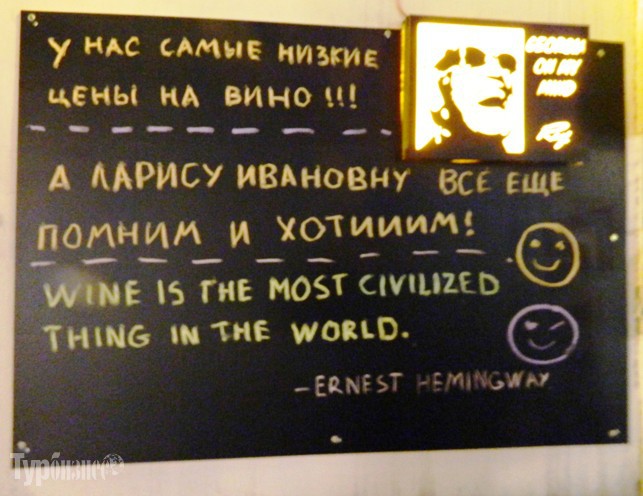 У НАС САМЫЕ НИЗКИЕ
ЦЕНЫ НА ВИНО!!!
А ЛАРИСУ ИВАНОВНУ ВСЕ ЕЩЕ
ПОМНИМ И ХОТИИИМ!
WINE IS THE MOST CIVILIZED
THING IN THE WORLD.
- ERNEST HEMINGWAY
Турбизнес